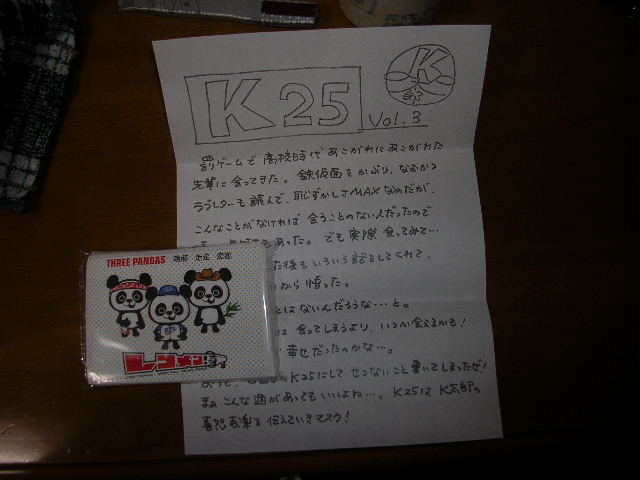 K25
K太郎
Vol.3
罰ゲームで高校時代あこがれにあこがれた
先輩に会ってきた。鉄仮面をかぶり、なおかつ
ラブレターも読んで、恥ずかしさMAXなのだが、
こんなことがなければ会うことのない人だったので
もあった。でも実際会ってみて…
た後もいろいろ話をしてくれて、
から悟った。
とはないんだろうな…と。
は会ってしまうより、いつか会えるかも!
幸せだったのかな…。
K25にしてせつないこと書いてしまったぜ!
まぁこんな週があってもいいよね…。K25はK太郎の
喜怒哀楽を伝えていきマスク!
THREE PANDAS
レコメン!